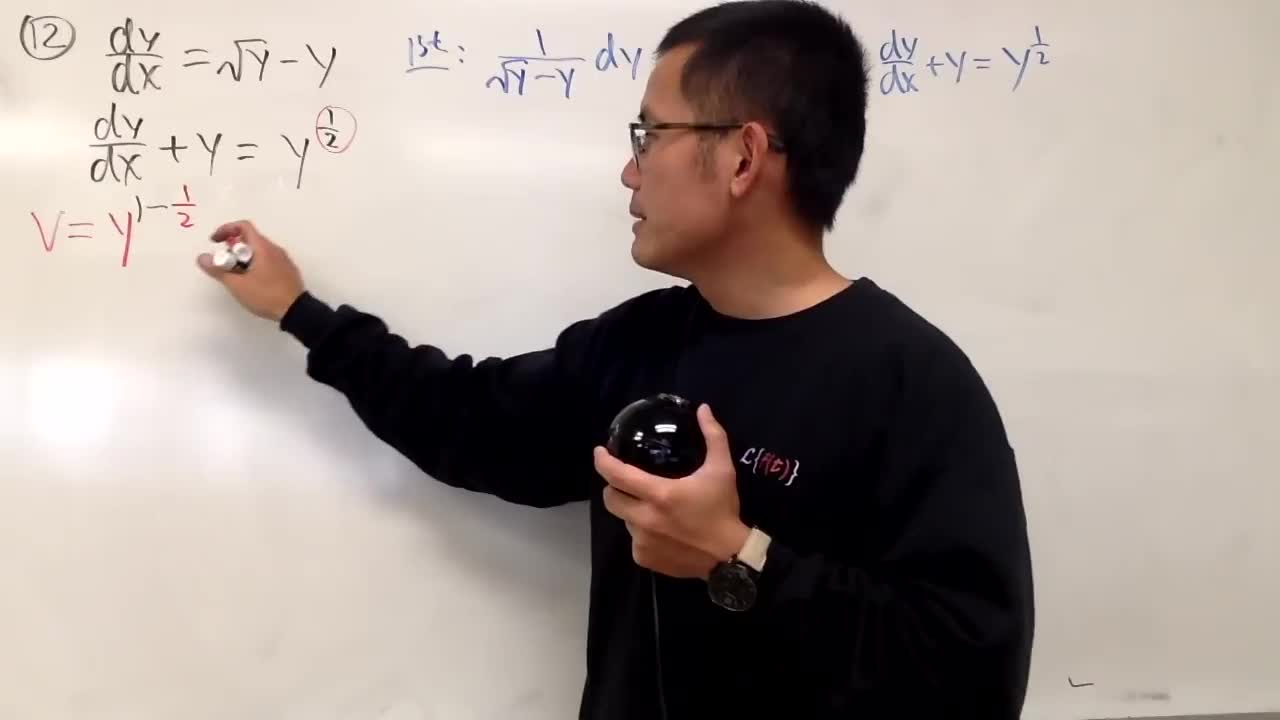 ⑫ dy/dx = √y - y
dy/dx + y = y^(1/2)
V = y^(1-1/2)
1st: 1/(√y - y) dy
dy/dx + y = y^(1/2)
L{f(t)}